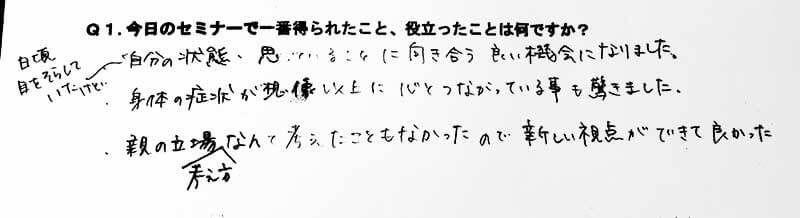 Q1.今日のセミナーで一番得られたこと、役立ったことは何ですか?
日頃
目をそらして
いたけど
・自分の状態、思っていることに向き合う良い機会になりました。
・身体の症状が想像以上に心とつながっている事も驚きました。
・親の立場なんて考えたこともなかったので新しい視点ができて良かった
考え方